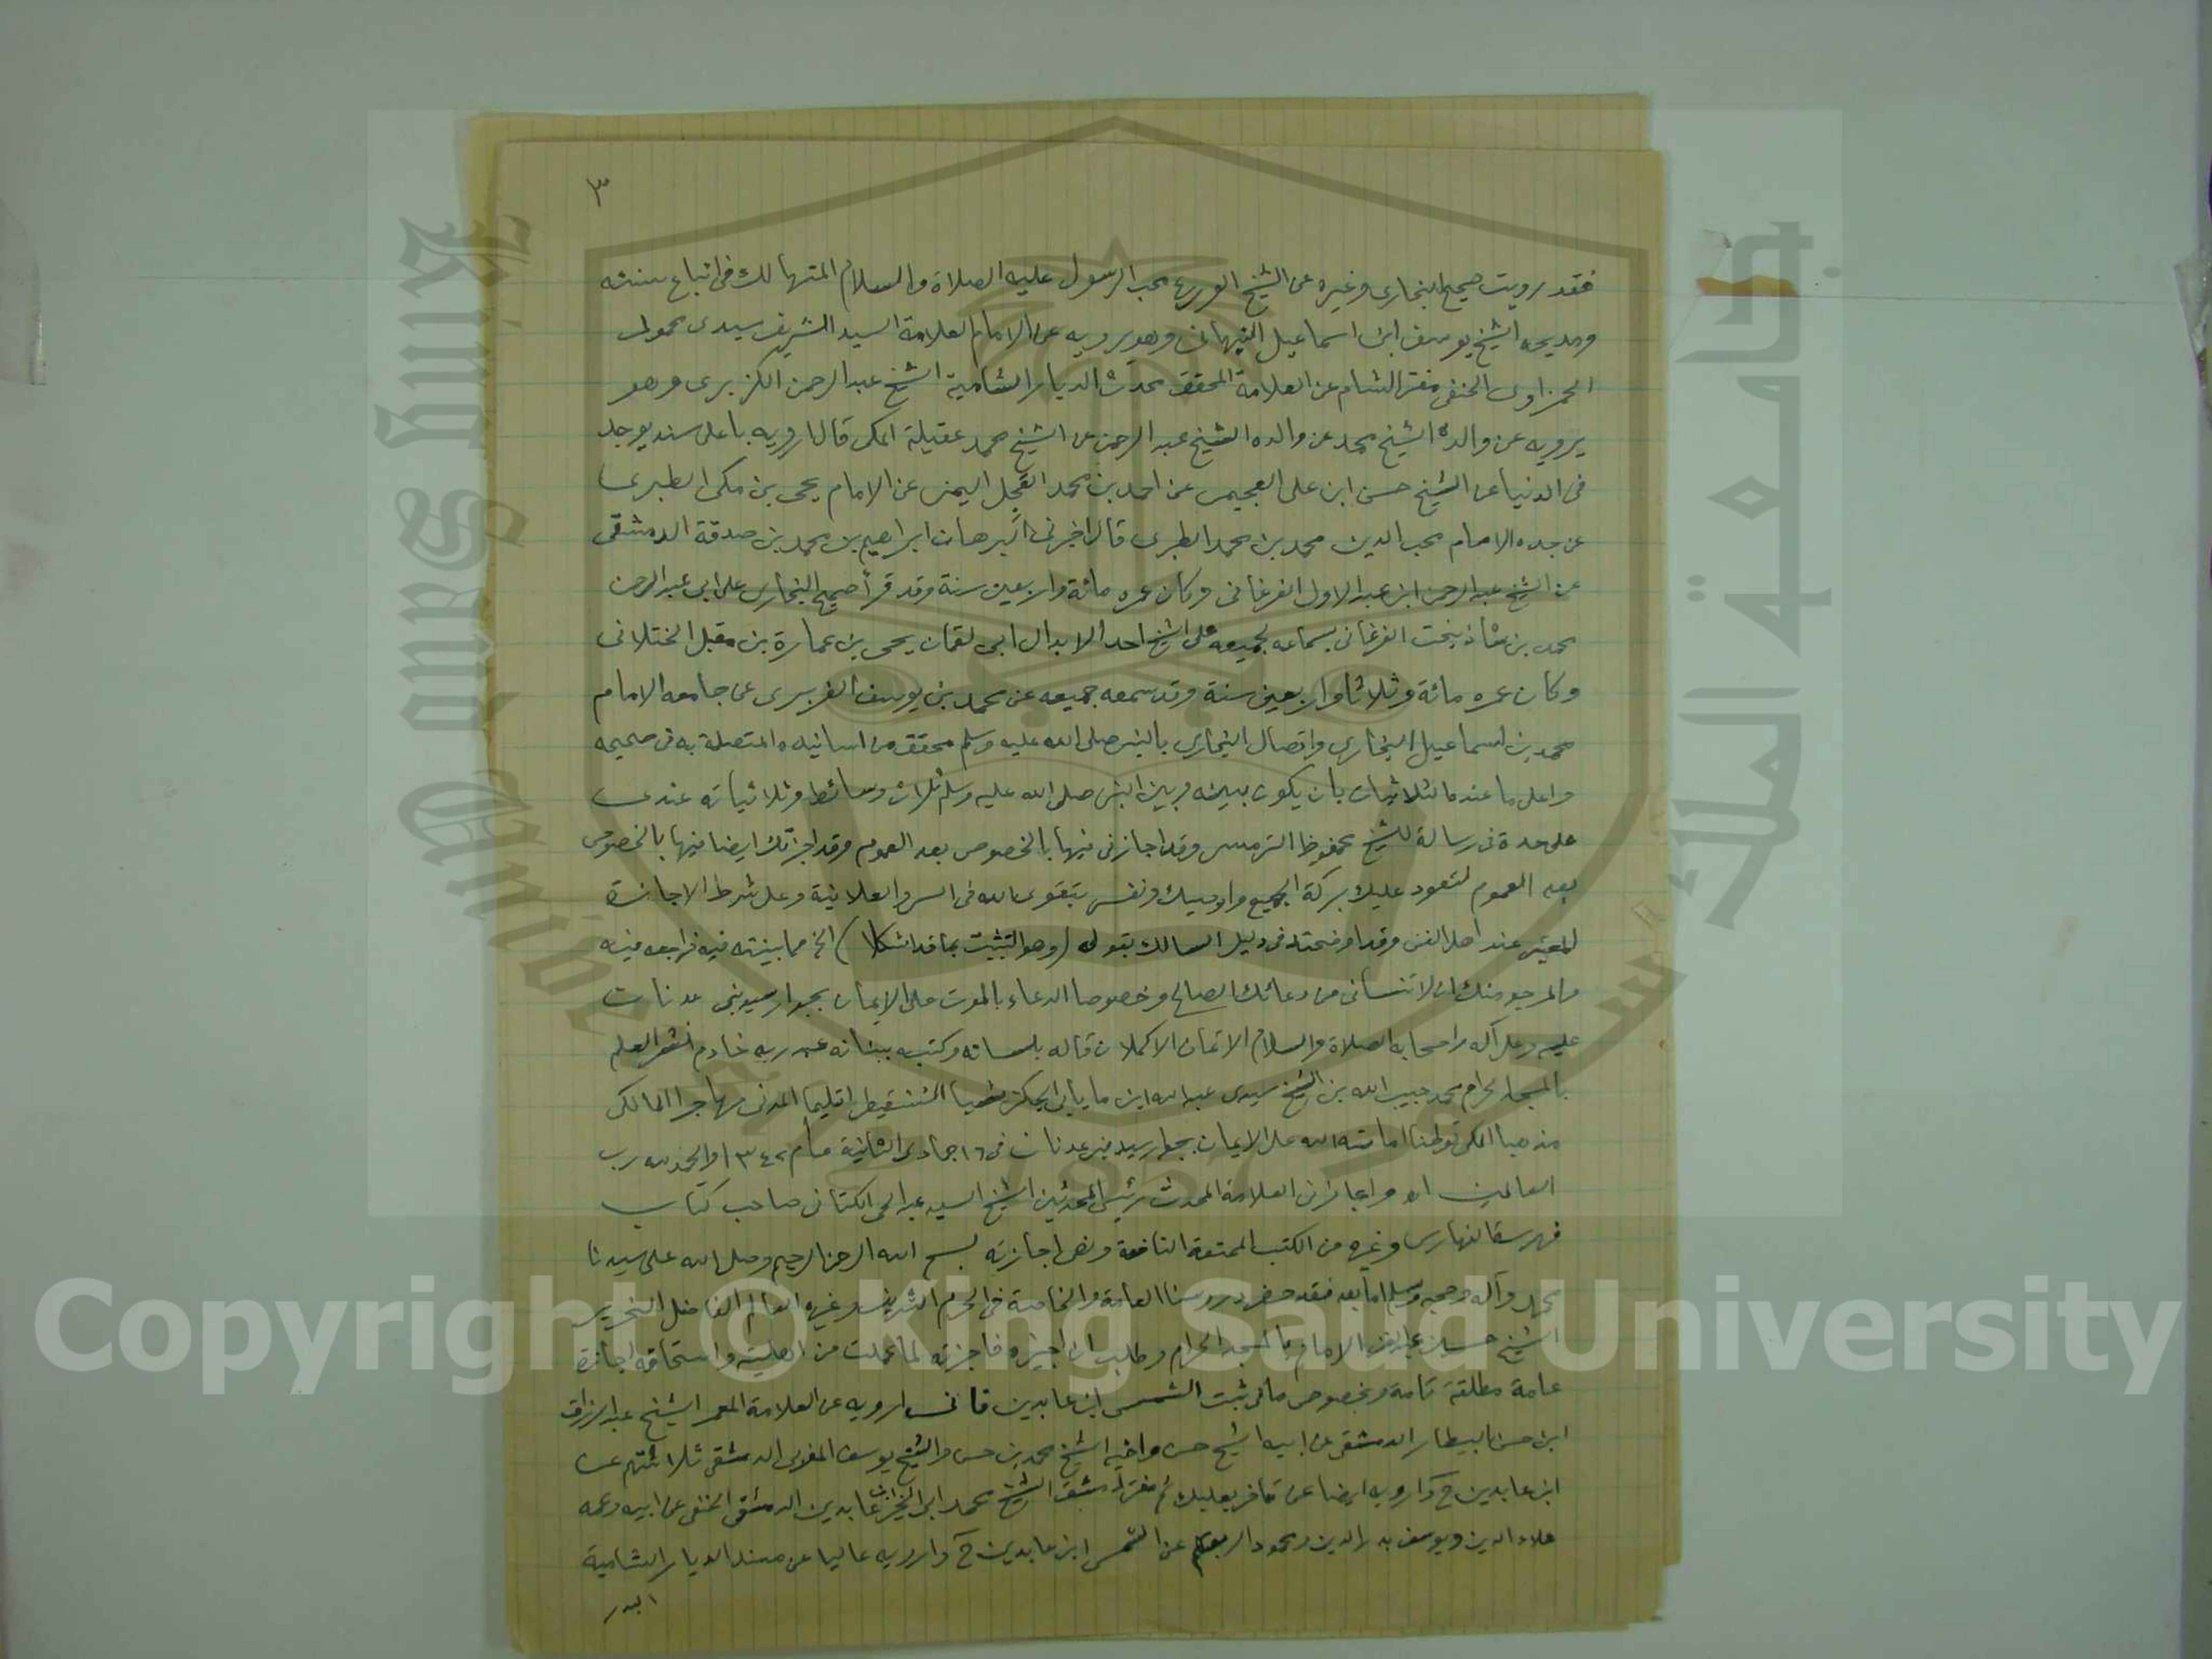 ٣
فقد رويت صحيح البخارى وغيره عن الشيخ الورع محب الرسول عليه الصلاة والسلام المتهالك فى اتباع سنته
ومديحه الشيخ يوسف ابن اسماعيل النبهانى وهو يرويه عن الامام العلامة السيد الشريف سيدى محمود
الحمزاوى الحنفى مفتى الشام عن العلامة المحقق محدث الديار الشامية الشيخ عبد الرحمن الكزبرى وهو
يرويه عن والده الشيخ محمد عن والده الشيخ عبد الرحمن عن الشيخ محمد عقيلة المكى قال ارويه باعلى سند يوجد
فى الدنيا عن الشيخ حسن ابن على العجيمى عن احمد بن محمد العجل اليمنى عن الامام يحى بن مكى الطبرى
عن جده الامام محب الدين محمد بن محمد الطبرى قال اخبرنى البرهان ابراهيم بن محمد بن صدقة الدمشقى
عن الشيخ عبد الرحمن ابن عبد الاول الفرغانى وكان عمره مائة واربعين سنة وقد قرأ صحيح البخارى على ابى عبد الرحمن
محمد بن شاذ بخت الفرغانى بسماعه لجميعه على الشيخ احد الابدال ابى لقمان يحى بن عمارة بن مقبل الختلانى
وكان عمره مائة وثلاثا واربعين سنة وقد سمعه جميعه عن محمد بن يوسف الفربرى عن جامعه الامام
محمد بن اسماعيل البخارى واتصال البخارى بالنبى صلى الله عليه وسلم محقق من اسانيده المتصلة به فى صحيحه
واعلى ما عنده الثلاثيات بان يكون بينه وبين النبى صلى الله عليه وسلم ثلاث وسائط وثلاثياته عندى
على حدة فى رسالة للشيخ محفوظ الترمسى وقد اجازنى فيها بالخصوص بعد العموم وقد اجزتك ايضا فيها بالخصوص
بعد العموم لتعود عليك بركة الجميع واوصيك ونفسى بتقوى الله فى السر والعلانية وعلى شرط الاجازة
المعتبر عند اهل الفن وقد اوضحته فى دليل السالك بقولى (وهو التثبت بما قد اشكلا) الخ مما بينته فيه فراجعه فيه
والمرجو منك ان لا تنسانى من دعائك الصالح وخصوصا الدعاء بالموت على الايمان بجوار سيد بنى عدنان
عليه وعلى آله واصحابه الصلاة والسلام الاتمان الاكملان قاله بلسانه وكتبه ببنانه عبد ربه خادم نشر العلم
بالمسجد الحرام محمد حبيب الله بن الشيخ سيدى عبد الله ابن مايابى الجكنى نسبا الشنقيطى اقليما المدنى مهاجرا المالكى
مذهبا المكى توطنا اماته الله على الايمان بجوار سيد بنى عدنان فى ١٦ جمادى الثانية عام ١٣٤٢ والحمد لله رب
العالمين اه واجازنى العلامة المحدث رئيس المحدثين الشيخ السيد عبد الحى الكتانى صاحب كتاب
فهرس الفهارس وغيره من الكتب الممتعة النافعة ونص اجازته بسم الله الرحمن الرحيم وصلى الله على سيدنا
محمد وآله وصحبه وسلم اما بعد فقد حضر دروسنا العامة والخاصة فى الحرم الشريف وغيره العالم الفاضل النحرير
الشيخ حسين عبد الغنى الامام بالمسجد الحرام وطلب ان اجيزه فاجزته لما علمت من اهليته واستحقاقه اجازة
عامة مطلقة تامة وبخصوص ما فى ثبت الشمس ابن عابدين فانى ارويه عن العلامة المعمر الشيخ عبد الرزاق
ابن حسن البيطار الدمشقى عن ابيه الشيخ حسن واخيه الشيخ محمد بن حسن والشيخ يوسف المغربى الدمشقى ثلاثتهم عن
ابن عابدين ح وارويه ايضا عن قاضى بعلبك ثم مفتى دمشق الشيخ محمد ابى الخير ابن عابدين الدمشقى الحنفى عن ابيه وعمه
علاء الدين ويوسف بدر الدين ومحمود اربعتهم عن الشمس ابن عابدين ح وارويه عاليا عن مسند الديار الشامية
البدر
Copyright © King Saud University